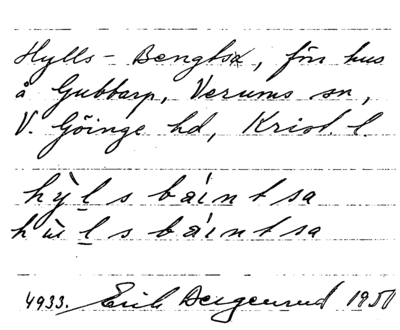 Hylls-Bengtsa, fön hus
å Gubbarp, Verums sn,
V. Göinge hd, Krist. l.
hỳl̲s báintsa
hùl̲s báintsa
4933. Erik 1950